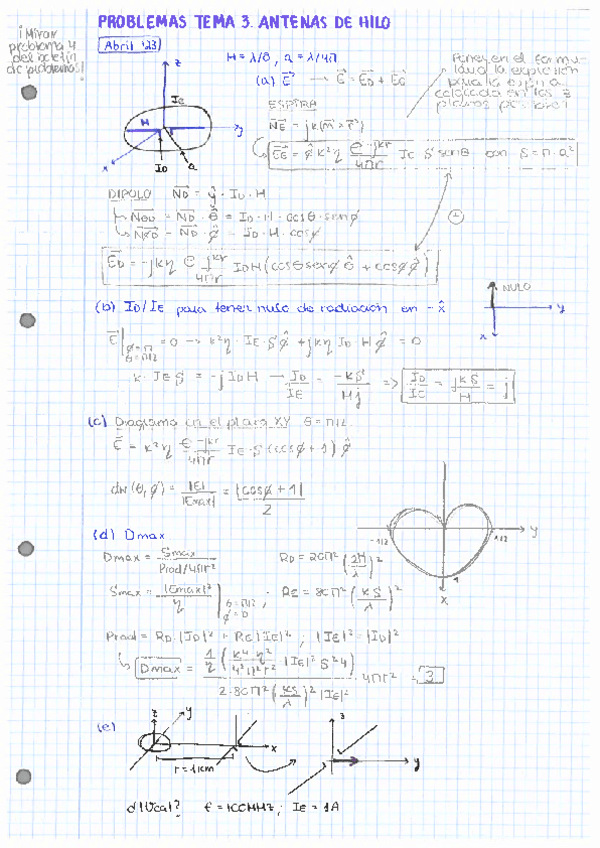 PROBLEMAS TEMA 3. ANTENAS DE HILO
¡Mirar
problema 4
del boletín
de problemas!
Abril '23
H = λ/8, a = λ/4π
(a) E → E = ED + EE
Poner en el formu-
lario la expresión
para la espira
colocada en los 3
planos posibles!
z
IE
H
y
x
ID
a
ESPIRA
NE = jk(m × r̂)
EE = φ̂ k²η e^-jkr/4πr IE S senθ con S = π·a²
DIPOLO ND = ŷ · ID · H
NθD = ND · θ̂ = ID · H · cosθ · senφ
NφD = ND · φ̂ = ID · H · cosφ
ED = -jkη e^-jkr/4πr IDH (cosθsenφ θ̂ + cosφ φ̂)
(b) ID/IE para tener nulo de radiación en -x̂
NULO
y
x
E|φ=π θ=π/2 = 0 → k²η · IE · S φ̂ + jkη ID · H φ̂ = 0
k · IE S = -j ID H → ID/IE = -kS/Hj ⇒ ID/IE = jkS/H = j
(c) Diagrama en el plano XY θ = π/2
E = k²η e^-jkr/4πr IE · S (cosφ + 1) φ̂
dn (θ, φ) = |E|/|Emax| = |cosφ + 1|/2
-1/2
1/2
y
1
x
(d) Dmax
Dmax = Smax/Prad/4πr²
RD = 20π² (2H/λ)²
Smax = |Emax|²/η |θ=π/2 φ=0 ; RE = 80π² (kS/λ)²
Prad = RD·|ID|² + RE|IE|² ; |IE|² = |ID|²
Dmax = 1/η (k⁴ η²/4²π²r² · |IE|² S² 4)/2·80π² (kS/λ)² |IE|² 4πr² = 3
(e)
z
y
x
r = 1km
z
y
d|Vca|? f = 100MHz ; IE = 1A